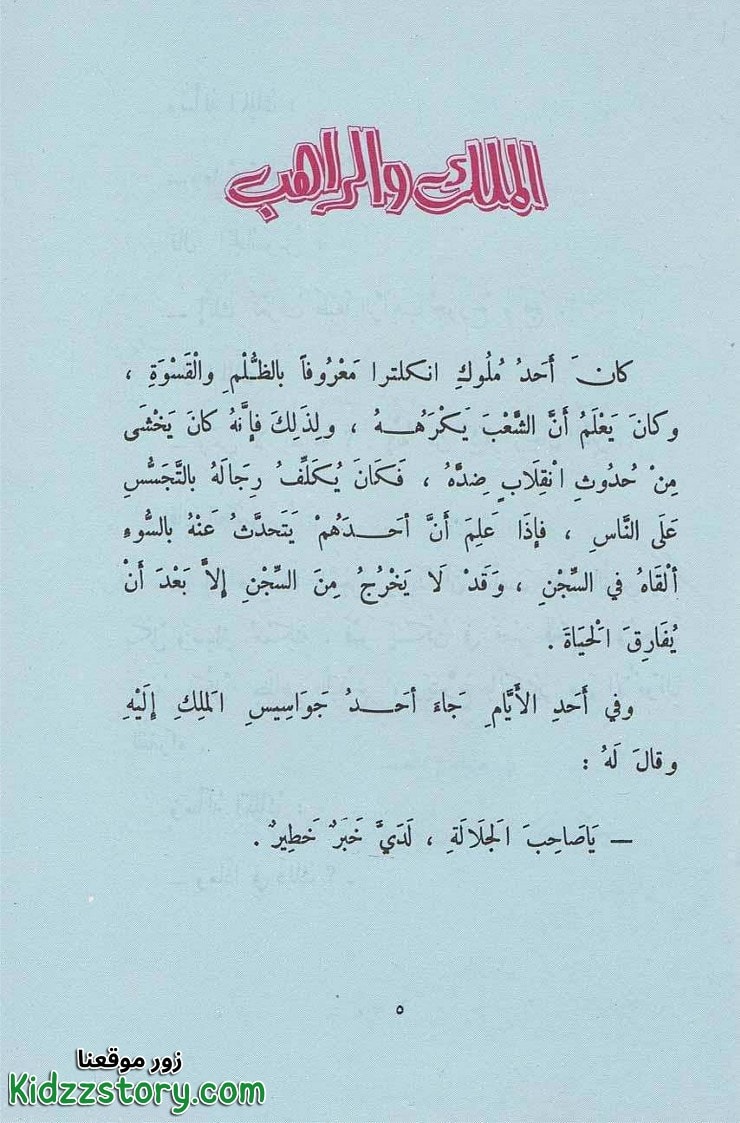 الملك والراهب
كانَ أَحَدُ مُلُوكِ انكلترا مَعْرُوفاً بالظُّلْمِ والْقَسْوَةِ ،
وكانَ يَعْلَمُ أَنَّ الشَّعْبَ يَكْرَهُـهُ ، ولِذَلِكَ فإنَّهُ كانَ يَخْشَى
مِنْ حُدُوثِ انْقِلَابٍ ضِدَّهُ ، فَكَانَ يُكَلِّفُ رِجَالَهُ بالتَّجَسُّسِ
عَلَى النَّاسِ ، فإذَا عَلِمَ أَنَّ أحَـدَهُمْ يَتَحَدَّثُ عَنْهُ بالسُّوءِ
ألْقَاهُ في السِّجْنِ ، وَقَدْ لَا يَخْرُجُ مِنَ السِّجْنِ إلاَّ بَعْدَ أَنْ
يُفَارِقَ الْحَيَاةَ .
وفي أَحَدِ الأَيَّامِ جَاءَ أحَـدُ جَوَاسِيسِ المَلِكِ إلَيْهِ
وقالَ لَهُ :
— يَاصَاحِبَ الجَلَالَةِ ، لَدَيَّ خَبَرٌ خَطِيرٌ .
٥
زور موقعنا
Kidzzstory.com